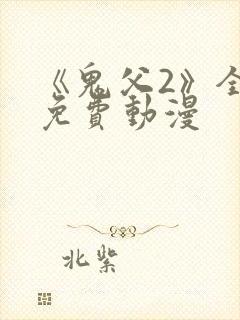 《鬼父2》全
免費動漫
北紫